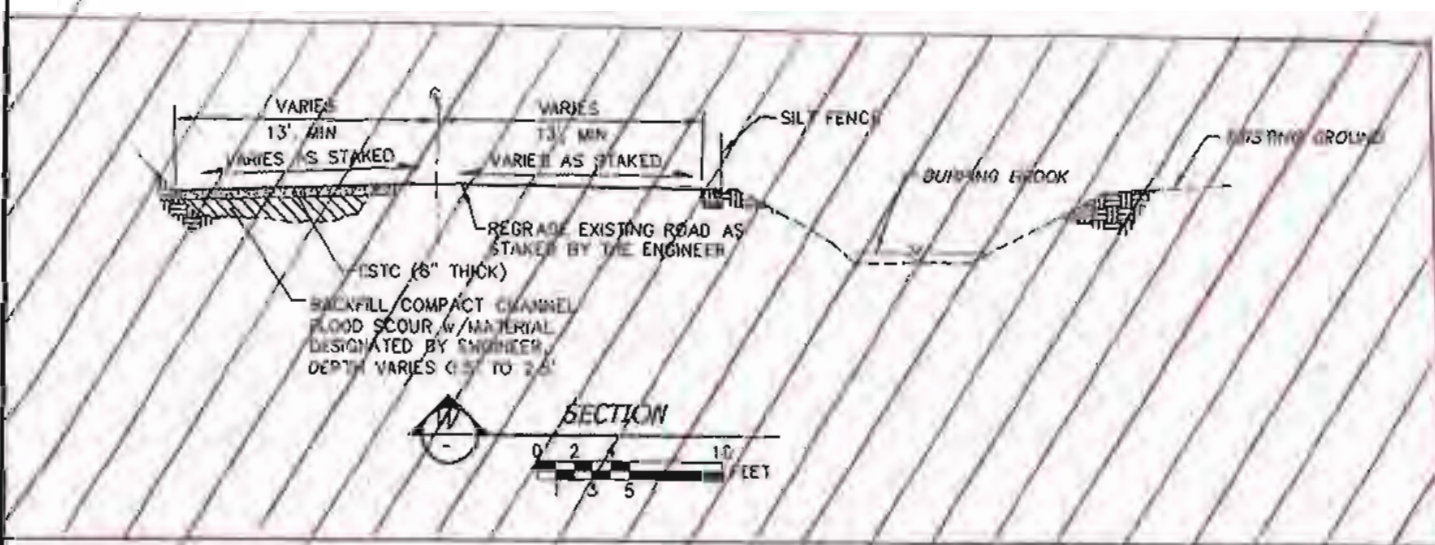 VARIES
13' MIN
VARIES AS STAKED
VARIES
13' MIN
VARIES AS STAKED
SILT FENCE
EXISTING GROUND
BROOK
REGRADE EXISTING ROAD AS
STAKED BY THE ENGINEER
CSTC (6" THICK)
BACKFILL COMPACT CHANNEL
FLOOD SCOUR W/MATERIAL
DESIGNATED BY ENGINEER,
DEPTH VARIES 0.5' TO 2.5'
W
-
SECTION
0 2 4 10
FEET
1 3 5